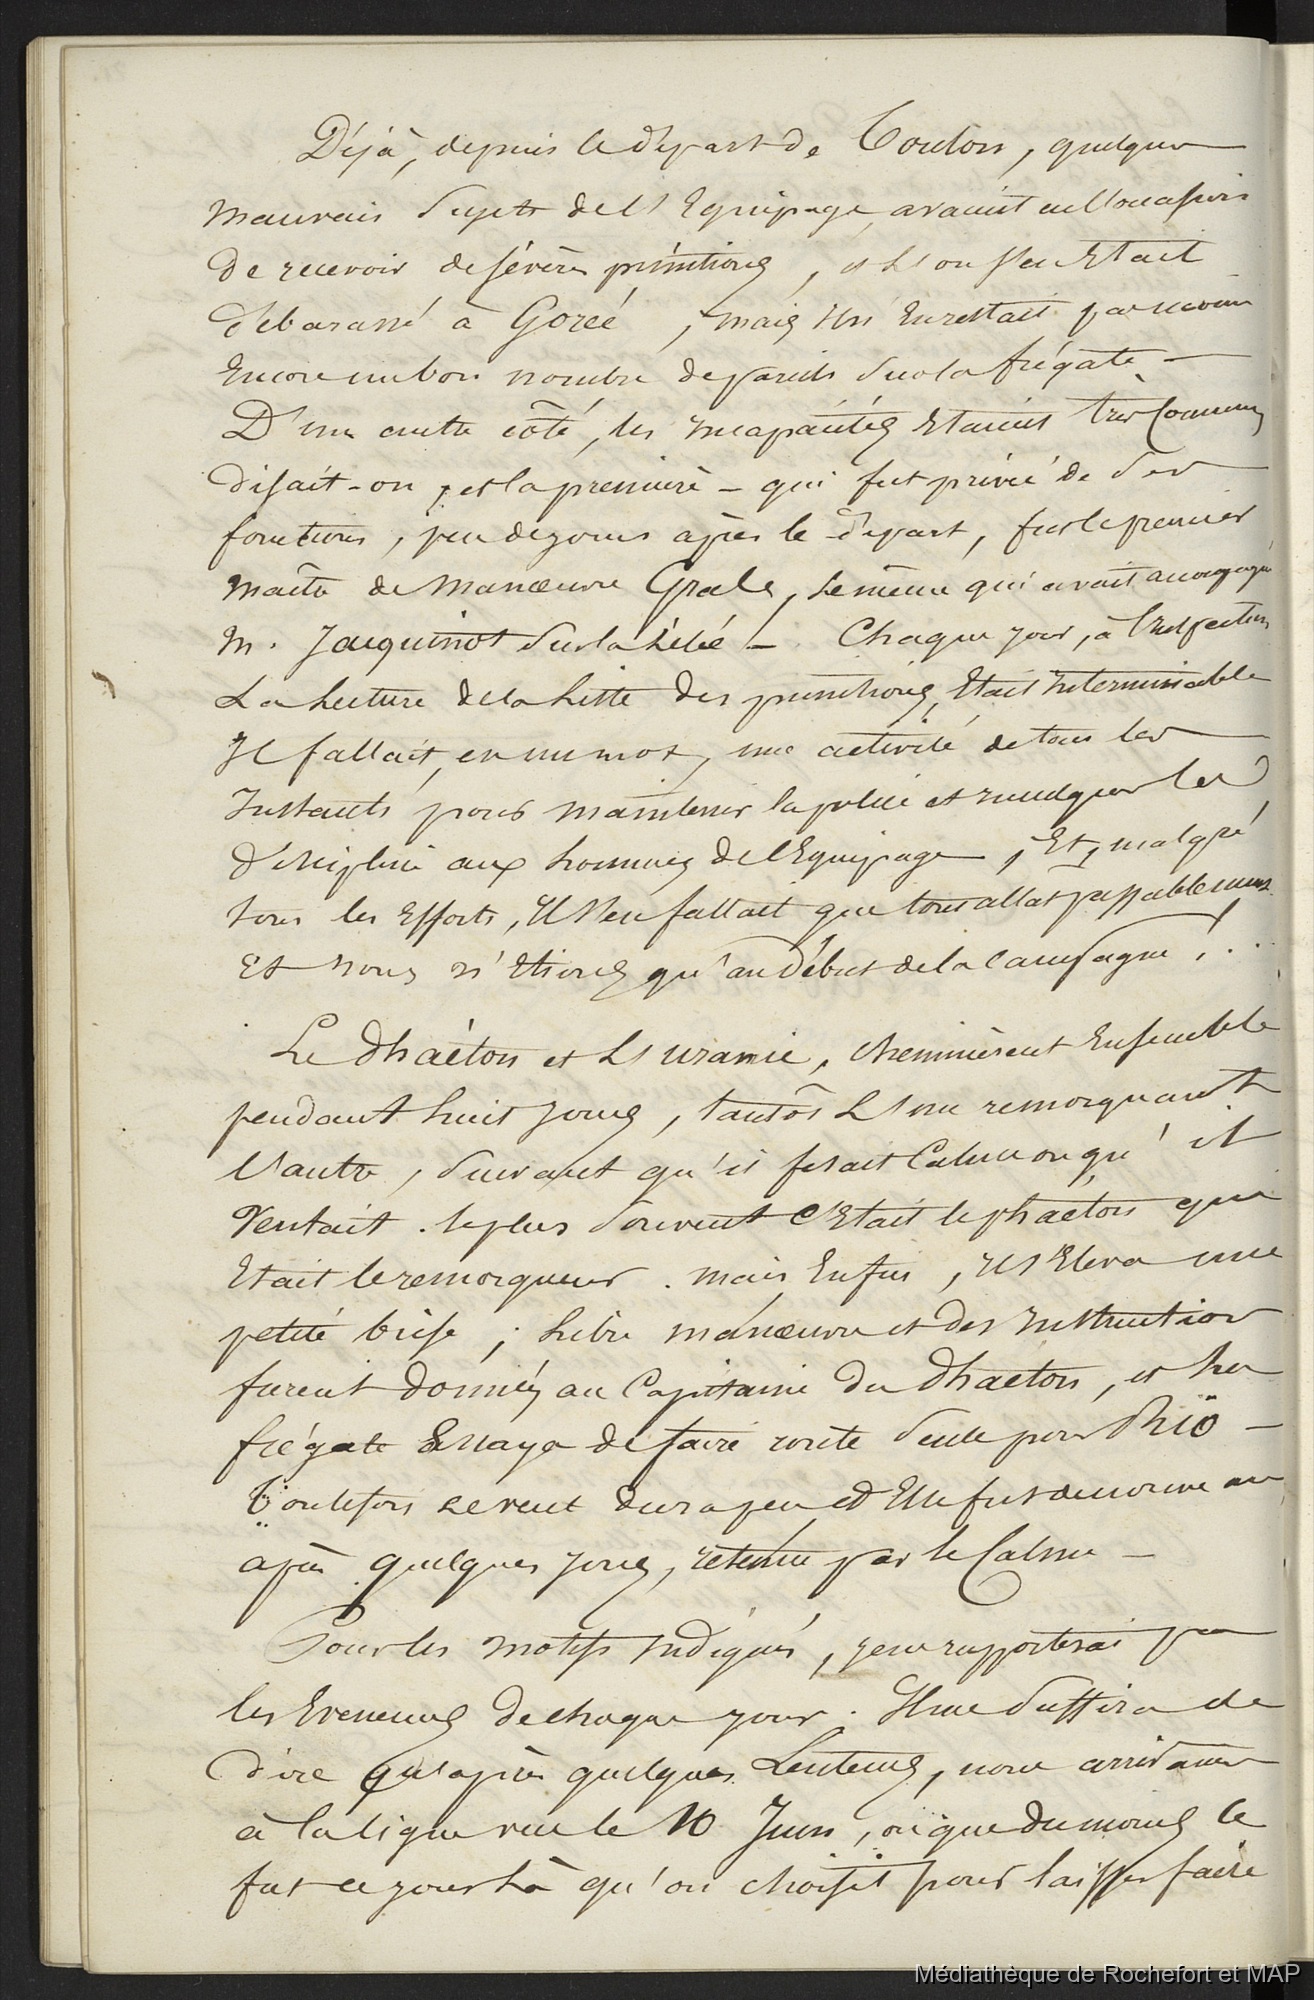 Déjà, depuis le départ de Toulon, quelques
mauvais sujets de l'Equipage, avaient eu l'occasion
de recevoir de sévères punitions, et l'on s'en Etait
débarassé à Gorée, mais il en restait
Encore un bon nombre de pareils sur la frégate —
D'un autre côté, les incapacités Etaient très Communes
disait-on, et la première — qui fut privée de ses
fonctions, peu de jours après le départ, fut le premier
maître de manœuvre le même qui avait accompagné
M. Jacquinot sur la Zélée — Chaque jour, à l'Inspection
La Lecture de la Liste des punitions, Etait Interminable
Il fallait, en un mot, une activité de tous les
Instants pour maintenir la police et inculquer la
discipline aux hommes de l'Equipage, Et, malgré
tous les Efforts, Il s'en fallait que tout allat passablement
Et nous n'Etions qu'au début de la Campagne !..
Le Phaéton et L'uranie, cheminèrent Ensemble
pendant huit jours, tantôt L'une remorquant
l'autre, suivant qu'il fesait Calme ou qu'il
Ventait. le plus souvent c'Etait le phaéton qui
Etait le remorqueur. mais Enfin, Il s'Eleva une
petite brise ; Libre manœuvre et des Instructions
furent données au Capitaine du Phaéton, et La
frégate Essaya de faire route seule pour Rio —
Toutefois le vent dura peu et Elle fut de nouveau
après quelques jours, retenue par le Calme —
Pour les motifs Indiqués, je ne rapporterai pas
les Evenemens de chaque jour. Il me suffira de
dire qu'après quelques Lenteurs, nous arrivames
à la ligne vers le 10 Juin, où que du moins ce
fut ce jour là qu'on choisit pour laisser faire
Médiathèque de Rochefort et MAP